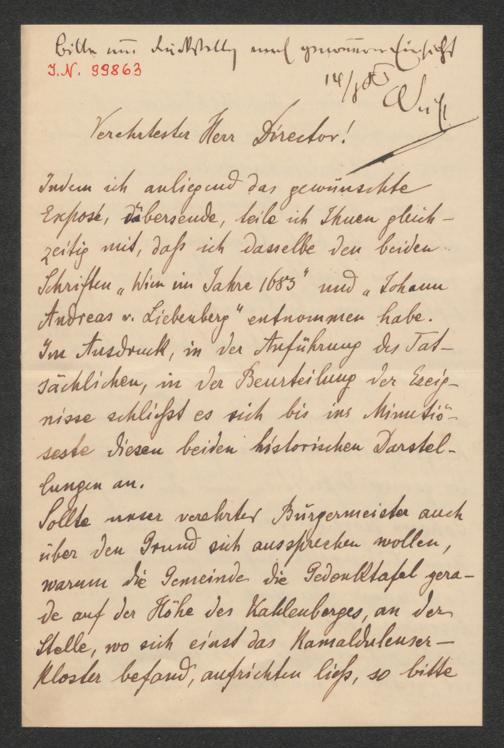 Bitte um Rückstellg nach genommener Einsicht
I.N. 99863
14/8
Verehrtester Herr Director!
Indem ich anliegend das gewünschte
Exposé, übersende, teile ich Ihnen gleich-
zeitig mit, daß ich dasselbe den beiden
Schriften „Wien im Jahre 1683" und „Johann
Andreas v. Liebenberg" entnommen habe.
Im Ausdruck, in der Anführung des Tat-
sächlichen, in der Beurteilung der Ereig-
nisse schließt es sich bis ins Minutiö-
seste diesen beiden historischen Darstel-
lungen an.
Sollte unser verehrter Bürgermeister auch
über den Grund sich aussprechen wollen,
warum die Gemeinde die Gedenktafel gera-
de auf der Höhe des Kahlenberges, an der
Stelle, wo sich einst das Kamaldulenser-
Kloster befand, aufrichten ließ, so bitte